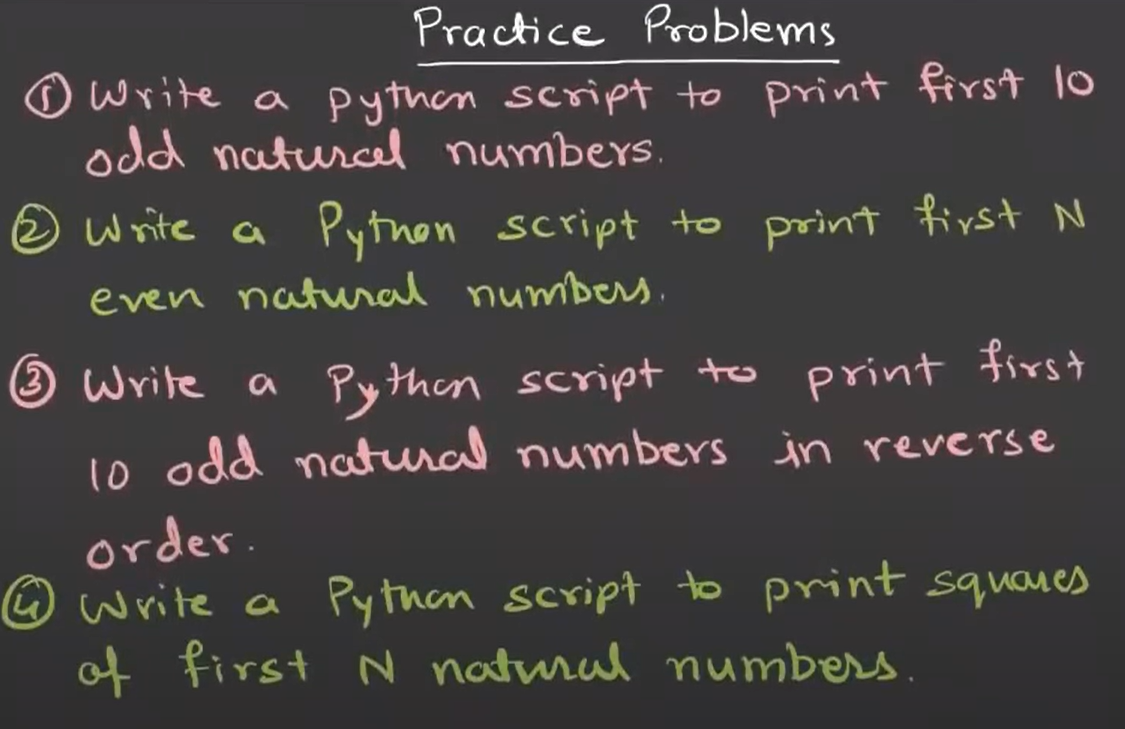 Practice Problems
① Write a python script to print first 10
odd natural numbers.
② Write a Python script to print first N
even natural numbers.
③ Write a Python script to print first
10 odd natural numbers in reverse
order.
④ Write a Python script to print squares
of first N natural numbers.